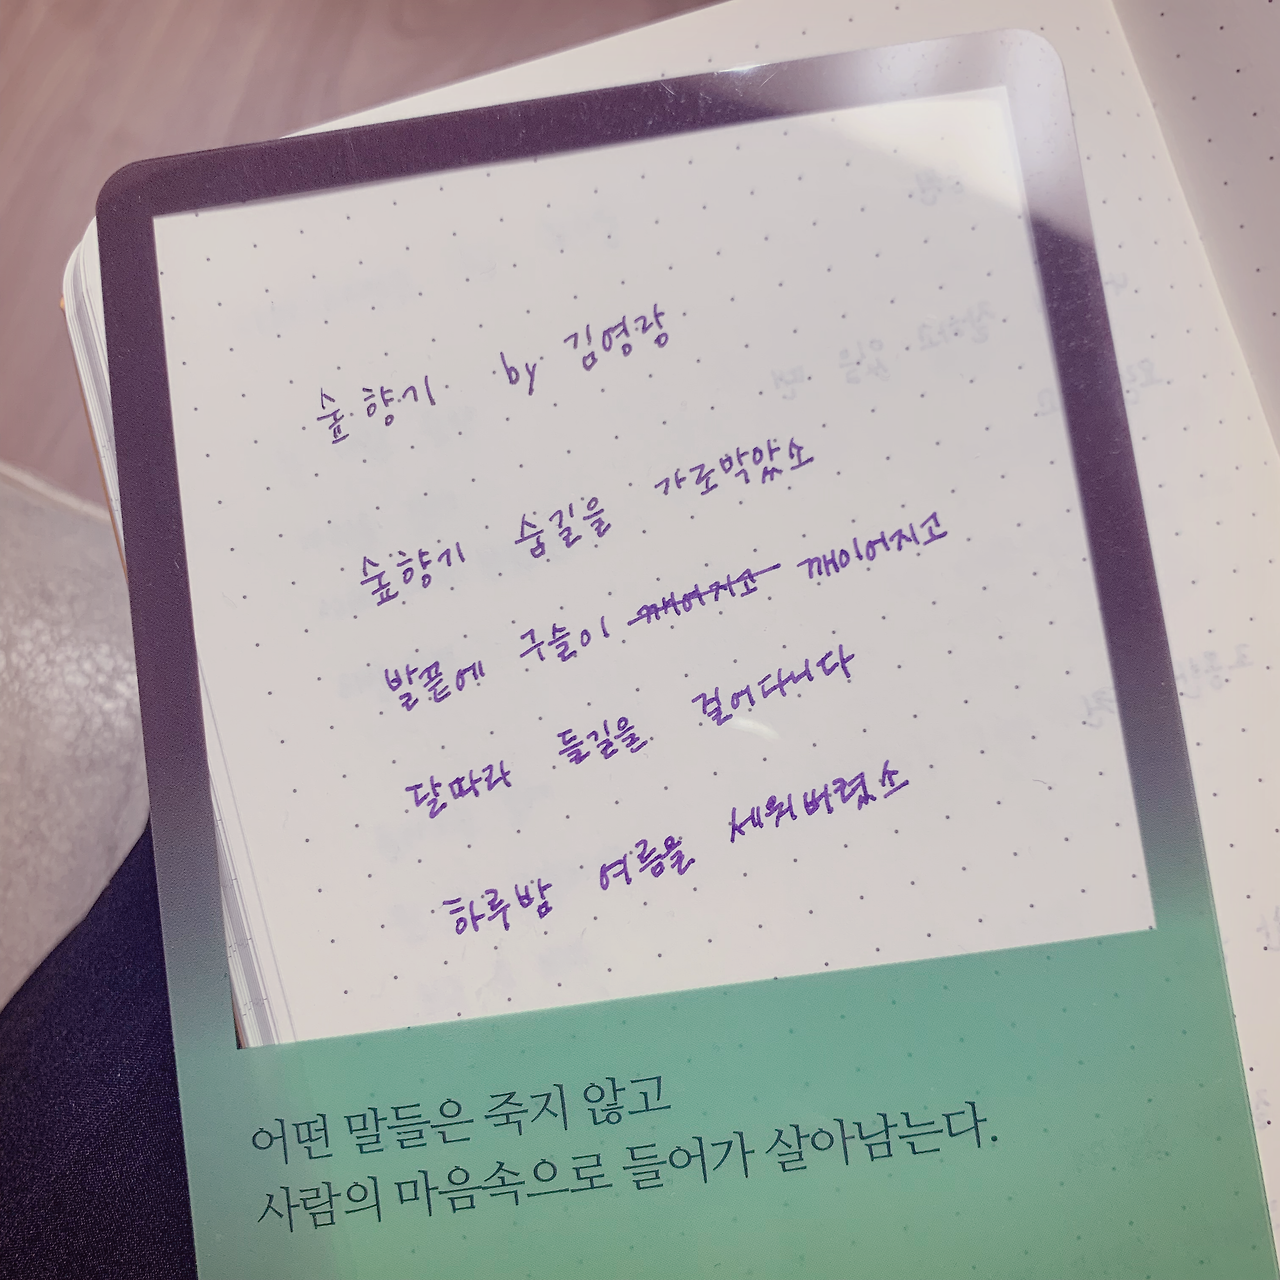 숲향기 by 김영랑
숲향기 숨길을 가로막았소
발끝에 구슬이 깨어지고 깨이어지고
달따라 들길을 걸어다니다
하루밤 여름을 세워버렸소
어떤 말들은 죽지 않고
사람의 마음속으로 들어가 살아남는다.